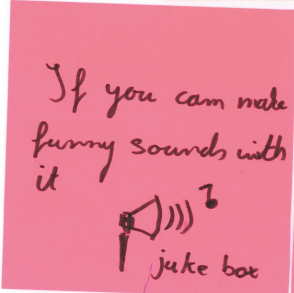 If you can make
funny sounds with
it
juke box